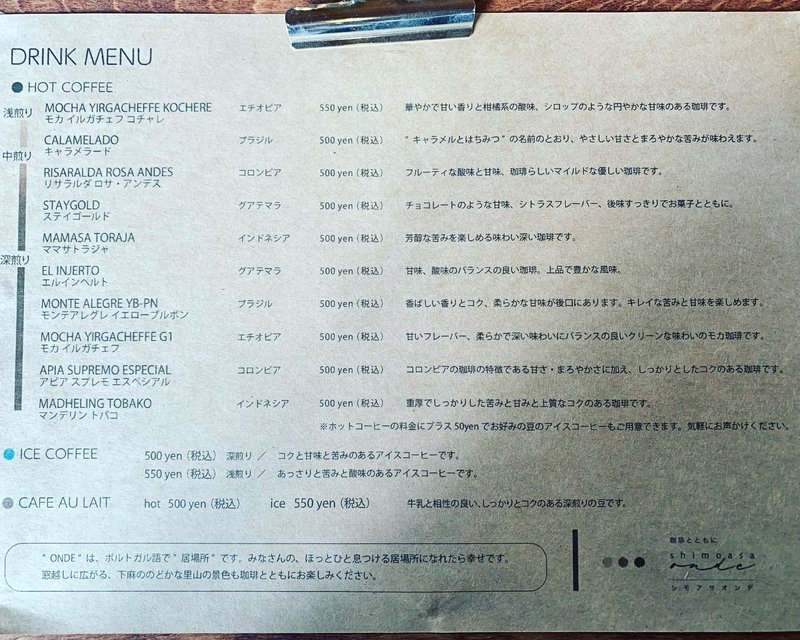 DRINK MENU
HOT COFFEE
浅煎り
MOCHA YIRGACHEFFE KOCHERE エチオピア 550 yen（税込） 華やかで甘い香りと柑橘系の酸味、シロップのような円やかな甘味のある珈琲です。
モカ イルガチェフ コチャレ
CALAMELADO ブラジル 500 yen（税込） ＂キャラメルとはちみつ＂の名前のとおり、やさしい甘さとまろやかな苦みが味わえます。
キャラメラード
中煎り
RISARALDA ROSA ANDES コロンビア 500 yen（税込） フルーティな酸味と甘味、珈琲らしいマイルドな優しい珈琲です。
リサラルダ ロサ・アンデス
STAYGOLD グアテマラ 500 yen（税込） チョコレートのような甘味、シトラスフレーバー、後味すっきりでお菓子とともに。
ステイゴールド
MAMASA TORAJA インドネシア 500 yen（税込） 芳醇な苦みを楽しめる味わい深い珈琲です。
ママサトラジャ
深煎り
EL INJERTO グアテマラ 500 yen（税込） 甘味、酸味のバランスの良い珈琲。上品で豊かな風味。
エルインヘルト
MONTE ALEGRE YB-PN ブラジル 500 yen（税込） 香ばしい香りとコク、柔らかな甘味が後口にあります。キレイな苦みと甘味を楽しめます。
モンテアレグレ イエローブルボン
MOCHA YIRGACHEFFE G1 エチオピア 500 yen（税込） 甘いフレーバー、柔らかで深い味わいにバランスの良いクリーンな味わいのモカ珈琲です。
モカ イルガチェフ
APIA SUPREMO ESPECIAL コロンビア 500 yen（税込） コロンビアの珈琲の特徴である甘さ・まろやかさに加え、しっかりとしたコクのある珈琲です。
アピア スプレモ エスペシアル
MADHELING TOBAKO インドネシア 500 yen（税込） 重厚でしっかりした苦みと甘みと上質なコクのある珈琲です。
マンデリン トバコ
※ホットコーヒーの料金にプラス 50yen でお好みの豆のアイスコーヒーもご用意できます。気軽にお声かけください。
ICE COFFEE 500 yen（税込） 深煎り ／ コクと甘味と苦みのあるアイスコーヒーです。
550 yen（税込） 浅煎り ／ あっさりと苦みと酸味のあるアイスコーヒーです。
CAFE AU LAIT hot 500 yen（税込） ice 550 yen（税込） 牛乳と相性の良い、しっかりとコクのある深煎りの豆です。
＂ONDE＂は、ポルトガル語で＂居場所＂です。みなさんの、ほっとひと息つける居場所になれたら幸せです。
窓越しに広がる、下麻ののどかな里山の景色も珈琲とともにお楽しみください。
珈琲とともに
shimoasa
onde
シモアサオンデ